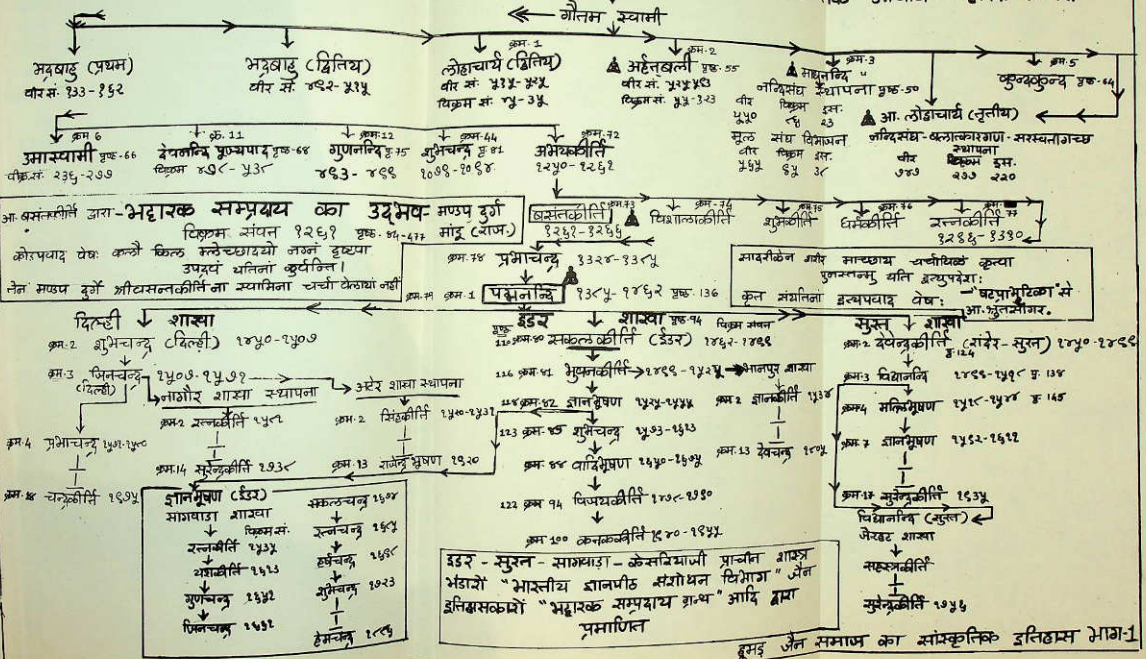 गौतम स्वामी
भद्रबाहु (प्रथम)
वीर सं. १३३-१६२
भद्रबाहु (द्वितिय)
वीर सं. ४९२-५१५
क्रम-1
लोहाचार्य (द्वितिय)
वीर सं. ५१५-५२५
विक्रम सं. ४५-३५
क्रम-2
अर्हतबली पृष्ठ-55
वीर सं. ५२५
विक्रम सं. ५५-१२३
क्रम-3
माघनन्दि
नन्दिसंघ स्थापना पृष्ठ-50
वीर विक्रम इस.
५५० ८६ २३
मूल संघ विभाजन
वीर विक्रम इस.
५६५ ९५ ३८
क्रम-5
कुन्दकुन्द पृष्ठ-64
आ. लोहाचार्य (तृतीय)
नन्दिसंघ-बलात्कारगण-सरस्वतीगच्छ
स्थापना
वीर विक्रम इस.
७४७ २७७ २२०
क्रम 6
उमास्वामी पृष्ठ-66
वीक्र.सं. २३६-२७७
क्र. 11
देवनन्दि पूज्यपाद पृष्ठ-68
विक्रम ४७८-५३८
क्रम-12
गुणनन्दि पृ 75
४९३-४९९
क्रम-44
शुभचन्द्र पृ 81
१०७९-१०९४
क्रम-72
अभयकीर्ति
१२५०-१२६१
आ. बसंतकीर्ति द्वारा-भट्टारक सम्प्रदाय का उदभव- मण्डप दुर्ग
विक्रम संवन १२६१ पृष्ठ-84-477 मांडू (राज.)
कोडपवाद वेषः कलौ किल म्लेच्छादयो नग्नं दृष्टवा
उपद्रवं यतिनां कुर्वन्ति।
तेन मण्डप दुर्गे श्रीवसन्तकीर्तिना स्वामिना चर्चा वेलायां नहीं
क्रम-73
बसंतकीर्ति
१२६१-१२६६
क्रम-74
विशालाकीर्ति
क्रम-75
शुभकीर्ति
क्रम-76
धर्मकीर्ति
क्रम-77
रत्नकीर्ति
१२९६-१३१०
क्रम-78 प्रभाचन्द्र १३२४-१३८५
क्रम-79 क्रम-1 पद्मनन्दि १३८५-१४६२ पृष्ठ-136
सादरीकेन शरीर माच्छाय चर्चायिकं कृत्वा
पुनस्तन्मु यति इत्युपदेशः
कृत संयतिना इत्यपवाद वेषः - "षटप्राभृटिका" से
आ. श्रुतसागर.
दिल्ही शाखा
क्रम-2 शुभचन्द्र (दिल्ही) १४५०-१५०७
क्रम-3 जिनचन्द्र १५०७-१५७१
(दिल्ही)
नागौर शाखा स्थापना
क्रम-2 रत्नकीर्ति १५८१
क्रम-14 सुरेन्द्रकीर्ति १७३८
अटेर शाखा स्थापना
क्रम-2 सिंहकीर्ति १५२०-१५३१
क्रम-13 राजेन्द्र भूषण १९२०
क्रम-4 प्रभाचन्द्र १५७१-१५८०
चन्द्रकीर्ति १९७५
ईडर शाखा पृष्ठ-94 विक्रम संवन
सकलकीर्ति (ईडर) १४६२-१४९९
116 क्रम-81 भुवनकीर्ति १४९९-१५२५
भानपुर शाखा
क्रम 2 ज्ञानकीर्ति १५३४
क्रम-13 देवचन्द्र १८०५
118 क्रम-82 ज्ञानभूषण १५२५-१५५५
123 क्रम-85 शुभचन्द्र १५७३-१६१३
क्रम-88 वादिभूषण १६५०-१६७५
122 क्रम 94 विजयकीर्ति
क्रम 100 कनककीर्ति १९४०-१९५५
सुरत शाखा
क्रम-2 देवेन्द्रकीर्ति (रांदेर-सुरत) १४५०-१४९९
पृ.124
क्रम-3 विद्यानन्दि १४९९-१५१८ पृ. 138
क्रम-4 मल्लिभूषण १५१८-१५४४ पृ. 145
क्रम-7 ज्ञानभूषण १५९२-१६११
क्रम-17 सुरेन्द्रकीर्ति १९३५
विद्यानन्दि (सुरत)
जेरहट शाखा
सहस्त्रकीर्ति
सुरेन्द्रकीर्ति १७५६
ज्ञानभूषण (ईडर)
सागवाडा शाखा
विक्रम सं.
रत्नकीर्ति १५३५
यशकीर्ति १६१३
गुणचन्द्र १६५२
जिनचन्द्र १६७२
सकलचन्द्र १६७४
रत्नचन्द्र १६८५
हर्षचन्द्र १६९८
शुभचन्द्र १७२३
हेमचन्द्र १८८६
ईडर - सुरत - सागवाडा - केसरियाजी प्राचीन शास्त्र
भंडारों "भारतीय ज्ञानपीठ संशोधन विभाग" जैन
इतिहासकारों "भट्टारक सम्प्रदाय ग्रन्थ" आदि द्वारा
प्रमाणित
हूमड़ जैन समाज का सांस्कृतिक इतिहास भाग-1